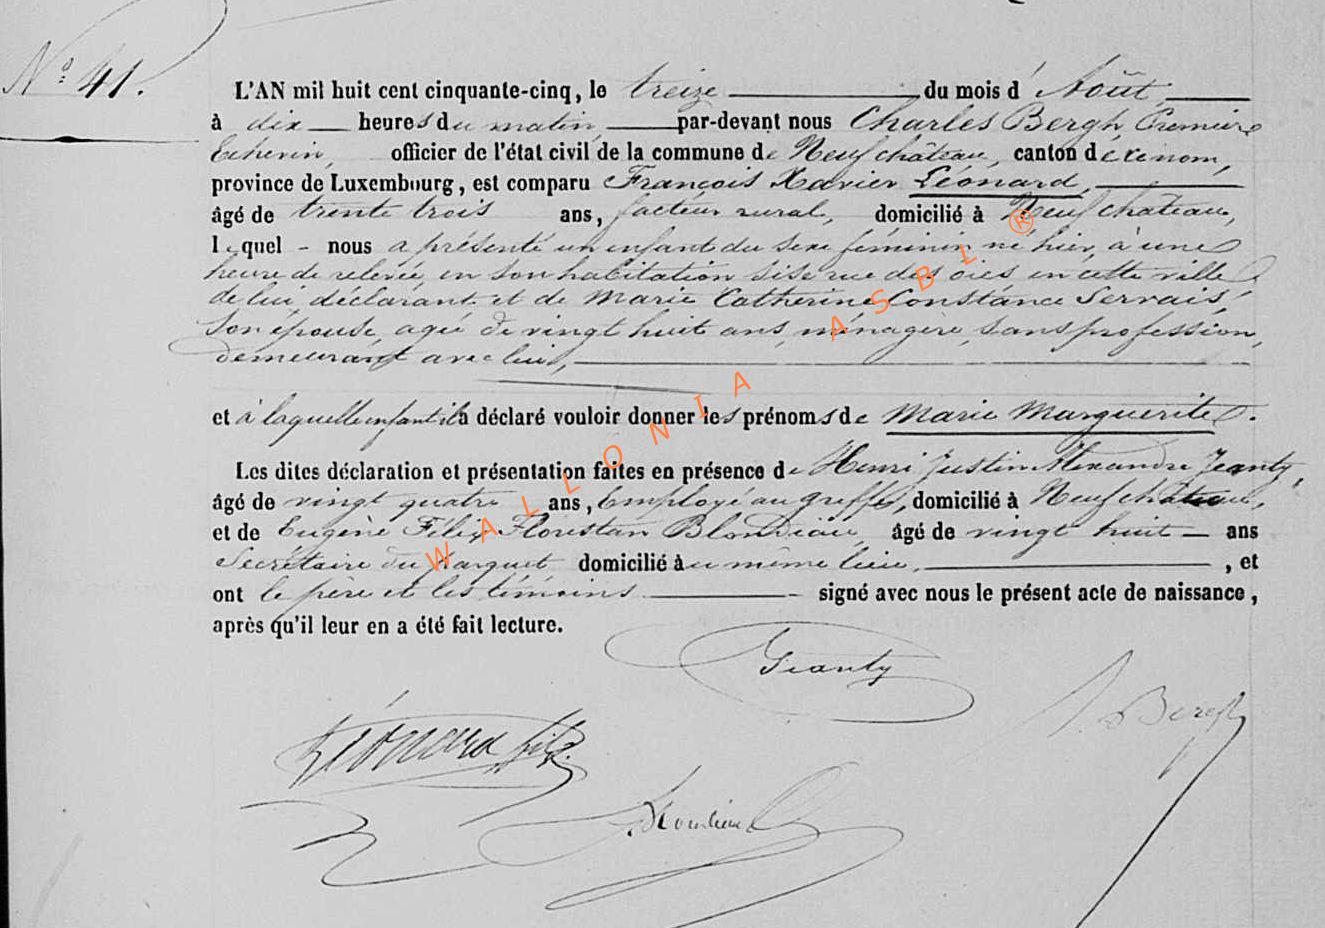 N° 41.
L'AN mil huit cent cinquante-cinq, le treize du mois d'Août
à dix heures du matin, par-devant nous Charles Bergh, Premier
Echevin, officier de l'état civil de la commune de Neufchâteau, canton de ce nom,
province de Luxembourg, est comparu François Xavier Léonard,
âgé de trente trois ans, facteur rural, domicilié à Neufchateau,
lequel nous a présenté un enfant du sexe féminin né hier, à une
heure de relevée, en son habitation sise rue des oies en cette ville
de lui déclarant et de Marie Catherine Constance Servais,
son épouse, agée de vingt huit ans, ménagère, sans profession,
demeurant avec lui,
et à laquelle enfant il a déclaré vouloir donner les prénoms de Marie Marguerite.
Les dites déclaration et présentation faites en présence de Henri Justin Alexandre Jeanty,
âgé de vingt quatre ans, Employé au greffe, domicilié à Neufchâteau,
et de Eugène Félix Florestan Blondiau, âgé de vingt huit ans
Secrétaire du Parquet domicilié au même lieu, , et
ont le père et les témoins signé avec nous le présent acte de naissance,
après qu'il leur en a été fait lecture.
Jeanty
Bergh
Léonard
WALLONIA ASBL ®